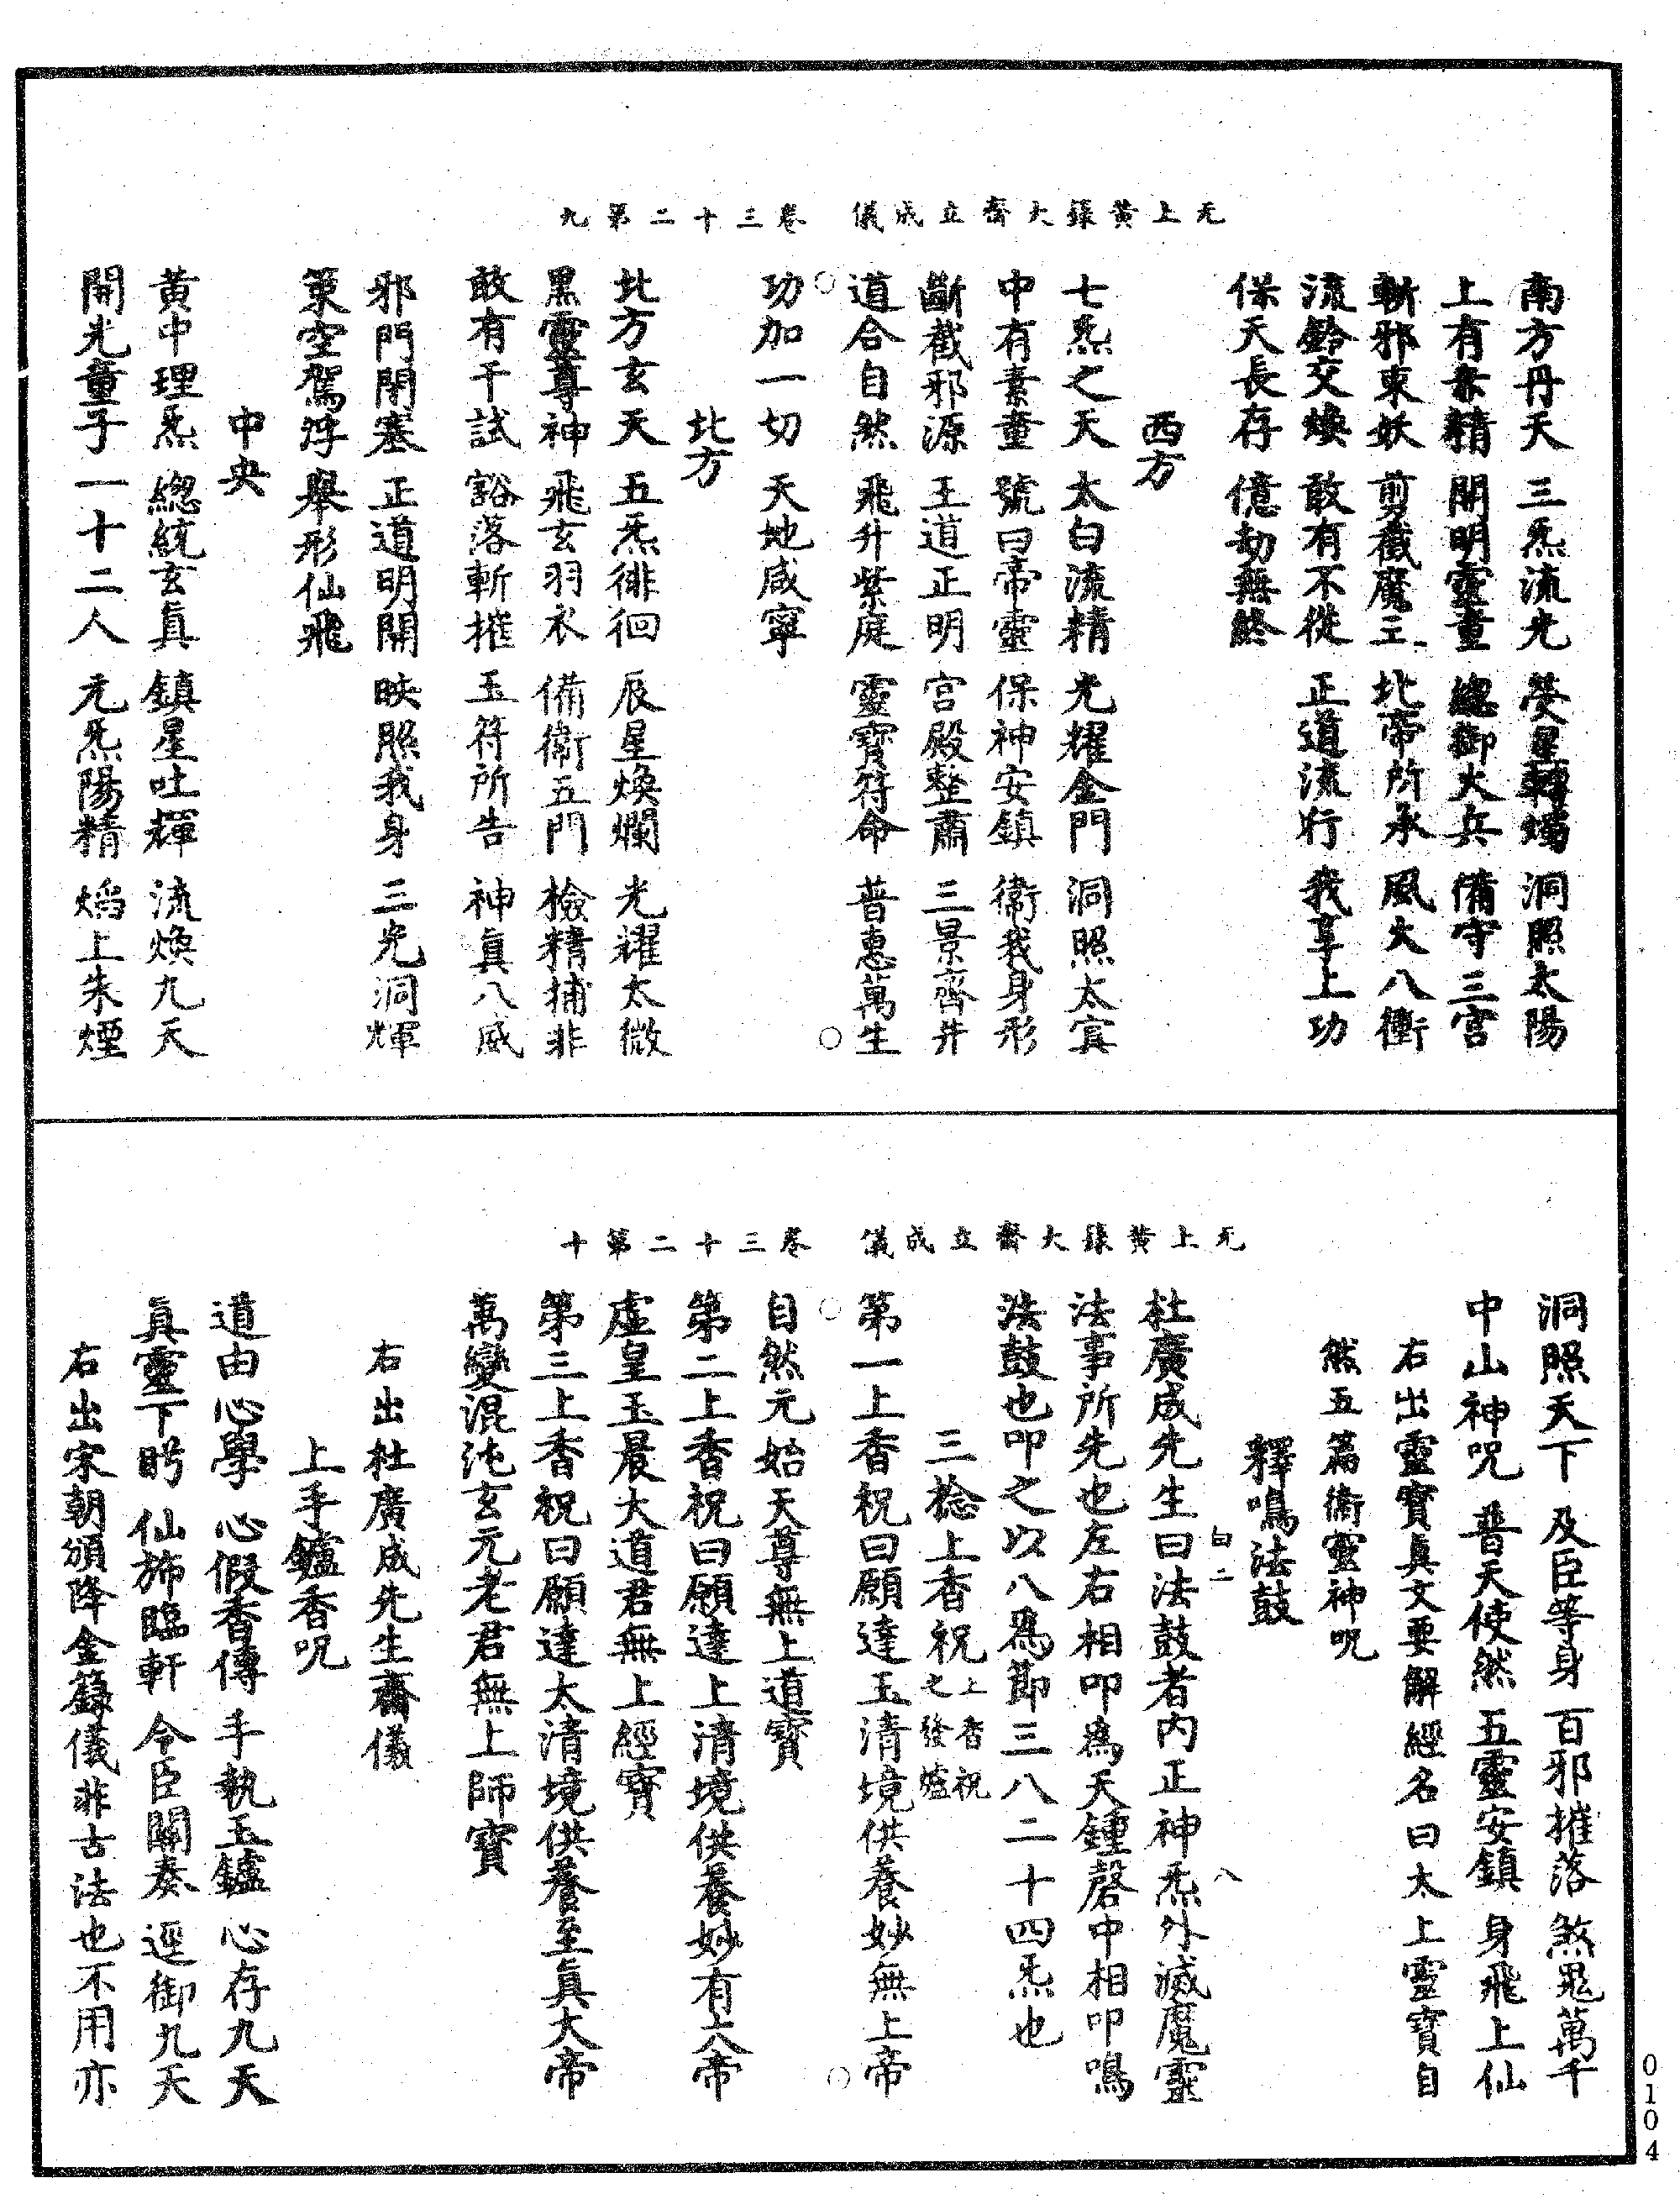 无上黃籙大齋立成儀　卷三十二第九
南方丹天　三炁流光　熒星轉燭　洞照太陽
上有赤精　開明靈童　總御火兵　備守三宮
斬邪束妖　剪截魔王　北帝所承　風火八衝
流鈴交煥　敢有不從　正道流行　我享上功
保天長存　億劫無終
西方
七炁之天　太白流精　光耀金門　洞照太冥
中有素童　號曰帝靈　保神安鎮　衞我身形
斷截邪源　王道正明　宮殿整肅　三景齊并
道合自然　飛升紫庭　靈寶符命　普惠萬生
功加一切　天地咸寧
北方
北方玄天　五炁徘徊　辰星煥爛　光耀太微
黑靈尊神　飛玄羽衣　備衞五門　檢精捕非
敢有干試　豁落斬摧　玉符所告　神眞八威
邪門閉塞　正道明開　映照我身　三光洞輝
策空駕浮　舉形仙飛
中央
黃中理炁　總統玄眞　鎮星吐輝　流煥九天
開光童子　一十二人　元炁陽精　焰上朱煙
无上黃籙大齋立成儀　卷三十二第十
洞照天下　及臣等身　百邪摧落　煞鬼萬千
中山神呪　普天使然　五靈安鎮　身飛上仙
右出靈寶眞文要解經名曰太上靈寶自
然五篇衞靈神呪
釋鳴法鼓
白二　八
杜廣成先生曰法鼓者內正神炁外滅魔靈
法事所先也左右相叩爲天鍾磬中相叩鳴
法鼓也叩之以八爲節三八二十四炁也
三捻上香祝上香祝之發爐
第一上香祝曰願達玉清境供養妙無上帝
自然元始天尊無上道寶
第二上香祝曰願達上清境供養妙有上帝
虛皇玉晨大道君無上經寶
第三上香祝曰願達太清境供養至眞大帝
萬變混沌玄元老君無上師寶
右出杜廣成先生齋儀
上手鑪香呪
道由心學　心假香傳　手執玉鑪　心存九天
眞靈下盻　仙旆臨軒　令臣關奏　逕御九天
右出宋朝頒降金籙儀非古法也不用亦
0104